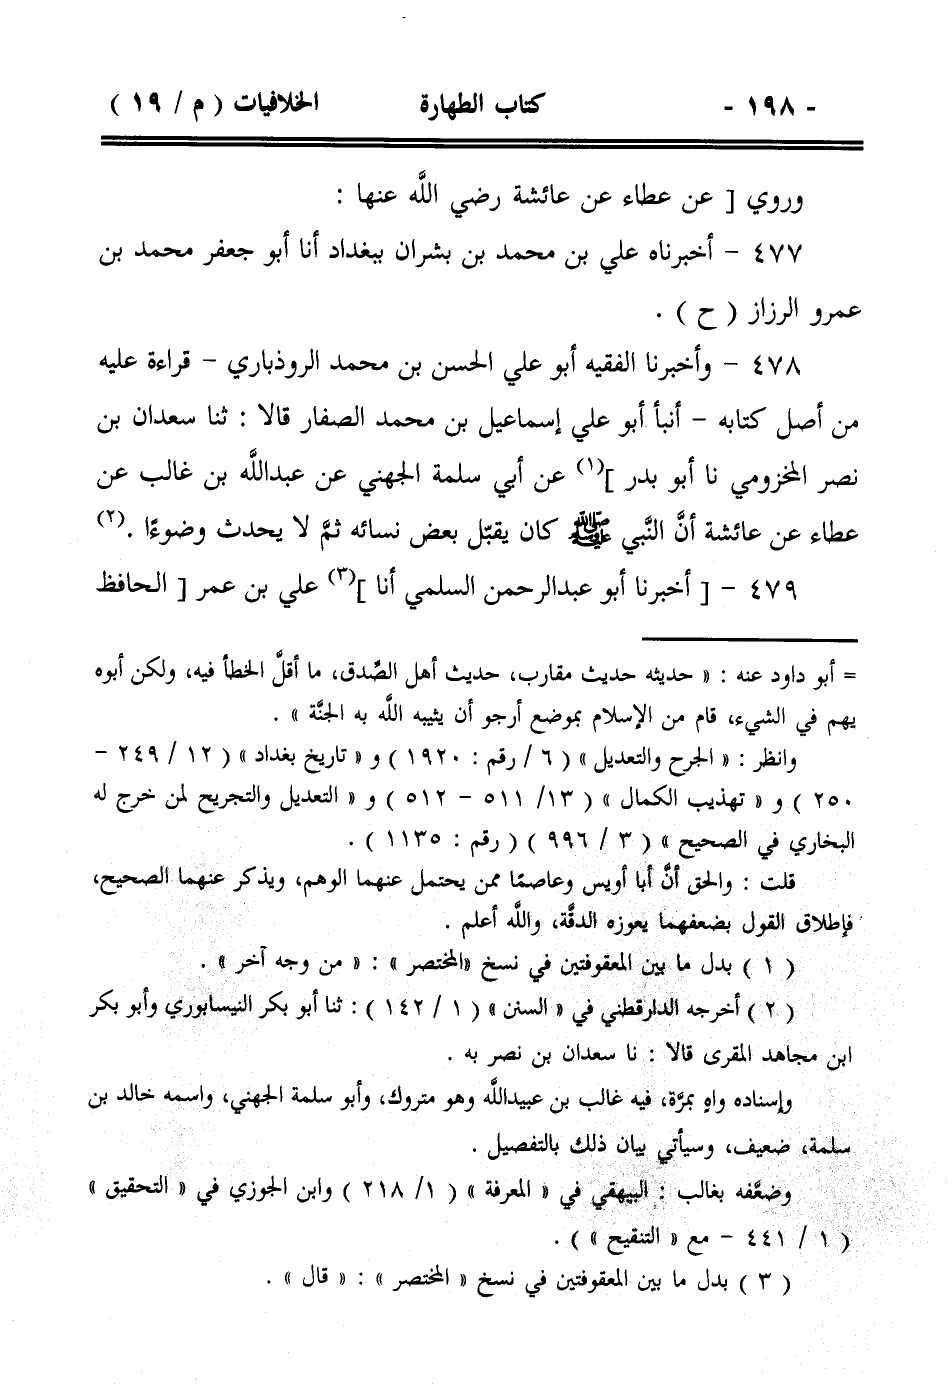 - ١٩٨ - كتاب الطهارة الخلافيات ( م / ١٩ )
وروي [ عن عطاء عن عائشة رضي اللَّه عنها :
٤٧٧ - أخبرناه علي بن محمد بن بشران ببغداد أنا أبو جعفر محمد بن
عمرو الرزاز ( ح ) .
٤٧٨ - وأخبرنا الفقيه أبو علي الحسن بن محمد الروذباري - قراءة عليه
من أصل كتابه - أنبأ أبو علي إسماعيل بن محمد الصفار قالا : ثنا سعدان بن
نصر المخزومي نا أبو بدر ](١) عن أبي سلمة الجهني عن عبداللَّه بن غالب عن
عطاء عن عائشة أنَّ النَّبي ﷺ كان يقبّل بعض نسائه ثمَّ لا يحدث وضوءًا .(٢)
٤٧٩ - [ أخبرنا أبو عبدالرحمن السلمي أنا ](٣) علي بن عمر [ الحافظ
= أبو داود عنه : « حديثه حديث مقارب، حديث أهل الصِّدق، ما أقلَّ الخطأ فيه، ولكن أبوه
يهم في الشيء، قام من الإسلام بموضع أرجو أن يثيبه اللَّه به الجنَّة » .
وانظر : « الجرح والتعديل » ( ٦ / رقم : ١٩٢٠ ) و « تاريخ بغداد » ( ١٢ / ٢٤٩ -
٢٥٠ ) و « تهذيب الكمال » ( ١٣/ ٥١١ - ٥١٢ ) و « التعديل والتجريح لمن خرج له
البخاري في الصحيح » ( ٣ / ٩٩٦ ) ( رقم : ١١٣٥ ) .
قلت : والحق أنَّ أبا أويس وعاصمًا ممن يحتمل عنهما الوهم، ويذكر عنهما الصحيح،
فإطلاق القول بضعفهما يعوزه الدقَّة، واللَّه أعلم .
( ١ ) بدل ما بين المعقوفتين في نسخ «المختصر » : « من وجه آخر » .
( ٢ ) أخرجه الدارقطني في « السنن » ( ١ / ١٤٢ ) : ثنا أبو بكر النيسابوري وأبو بكر
ابن مجاهد المقرى قالا : نا سعدان بن نصر به .
وإسناده واهٍ بمرَّة، فيه غالب بن عبيداللَّه وهو متروك، وأبو سلمة الجهني، واسمه خالد بن
سلمة، ضعيف، وسيأتي بيان ذلك بالتفصيل .
وضعَّفه بغالب : البيهقي في « المعرفة » ( ١/ ٢١٨ ) وابن الجوزي في « التحقيق »
( ١ / ٤٤١ - مع « التنقيح » ) .
( ٣ ) بدل ما بين المعقوفتين في نسخ « المختصر » : « قال » .